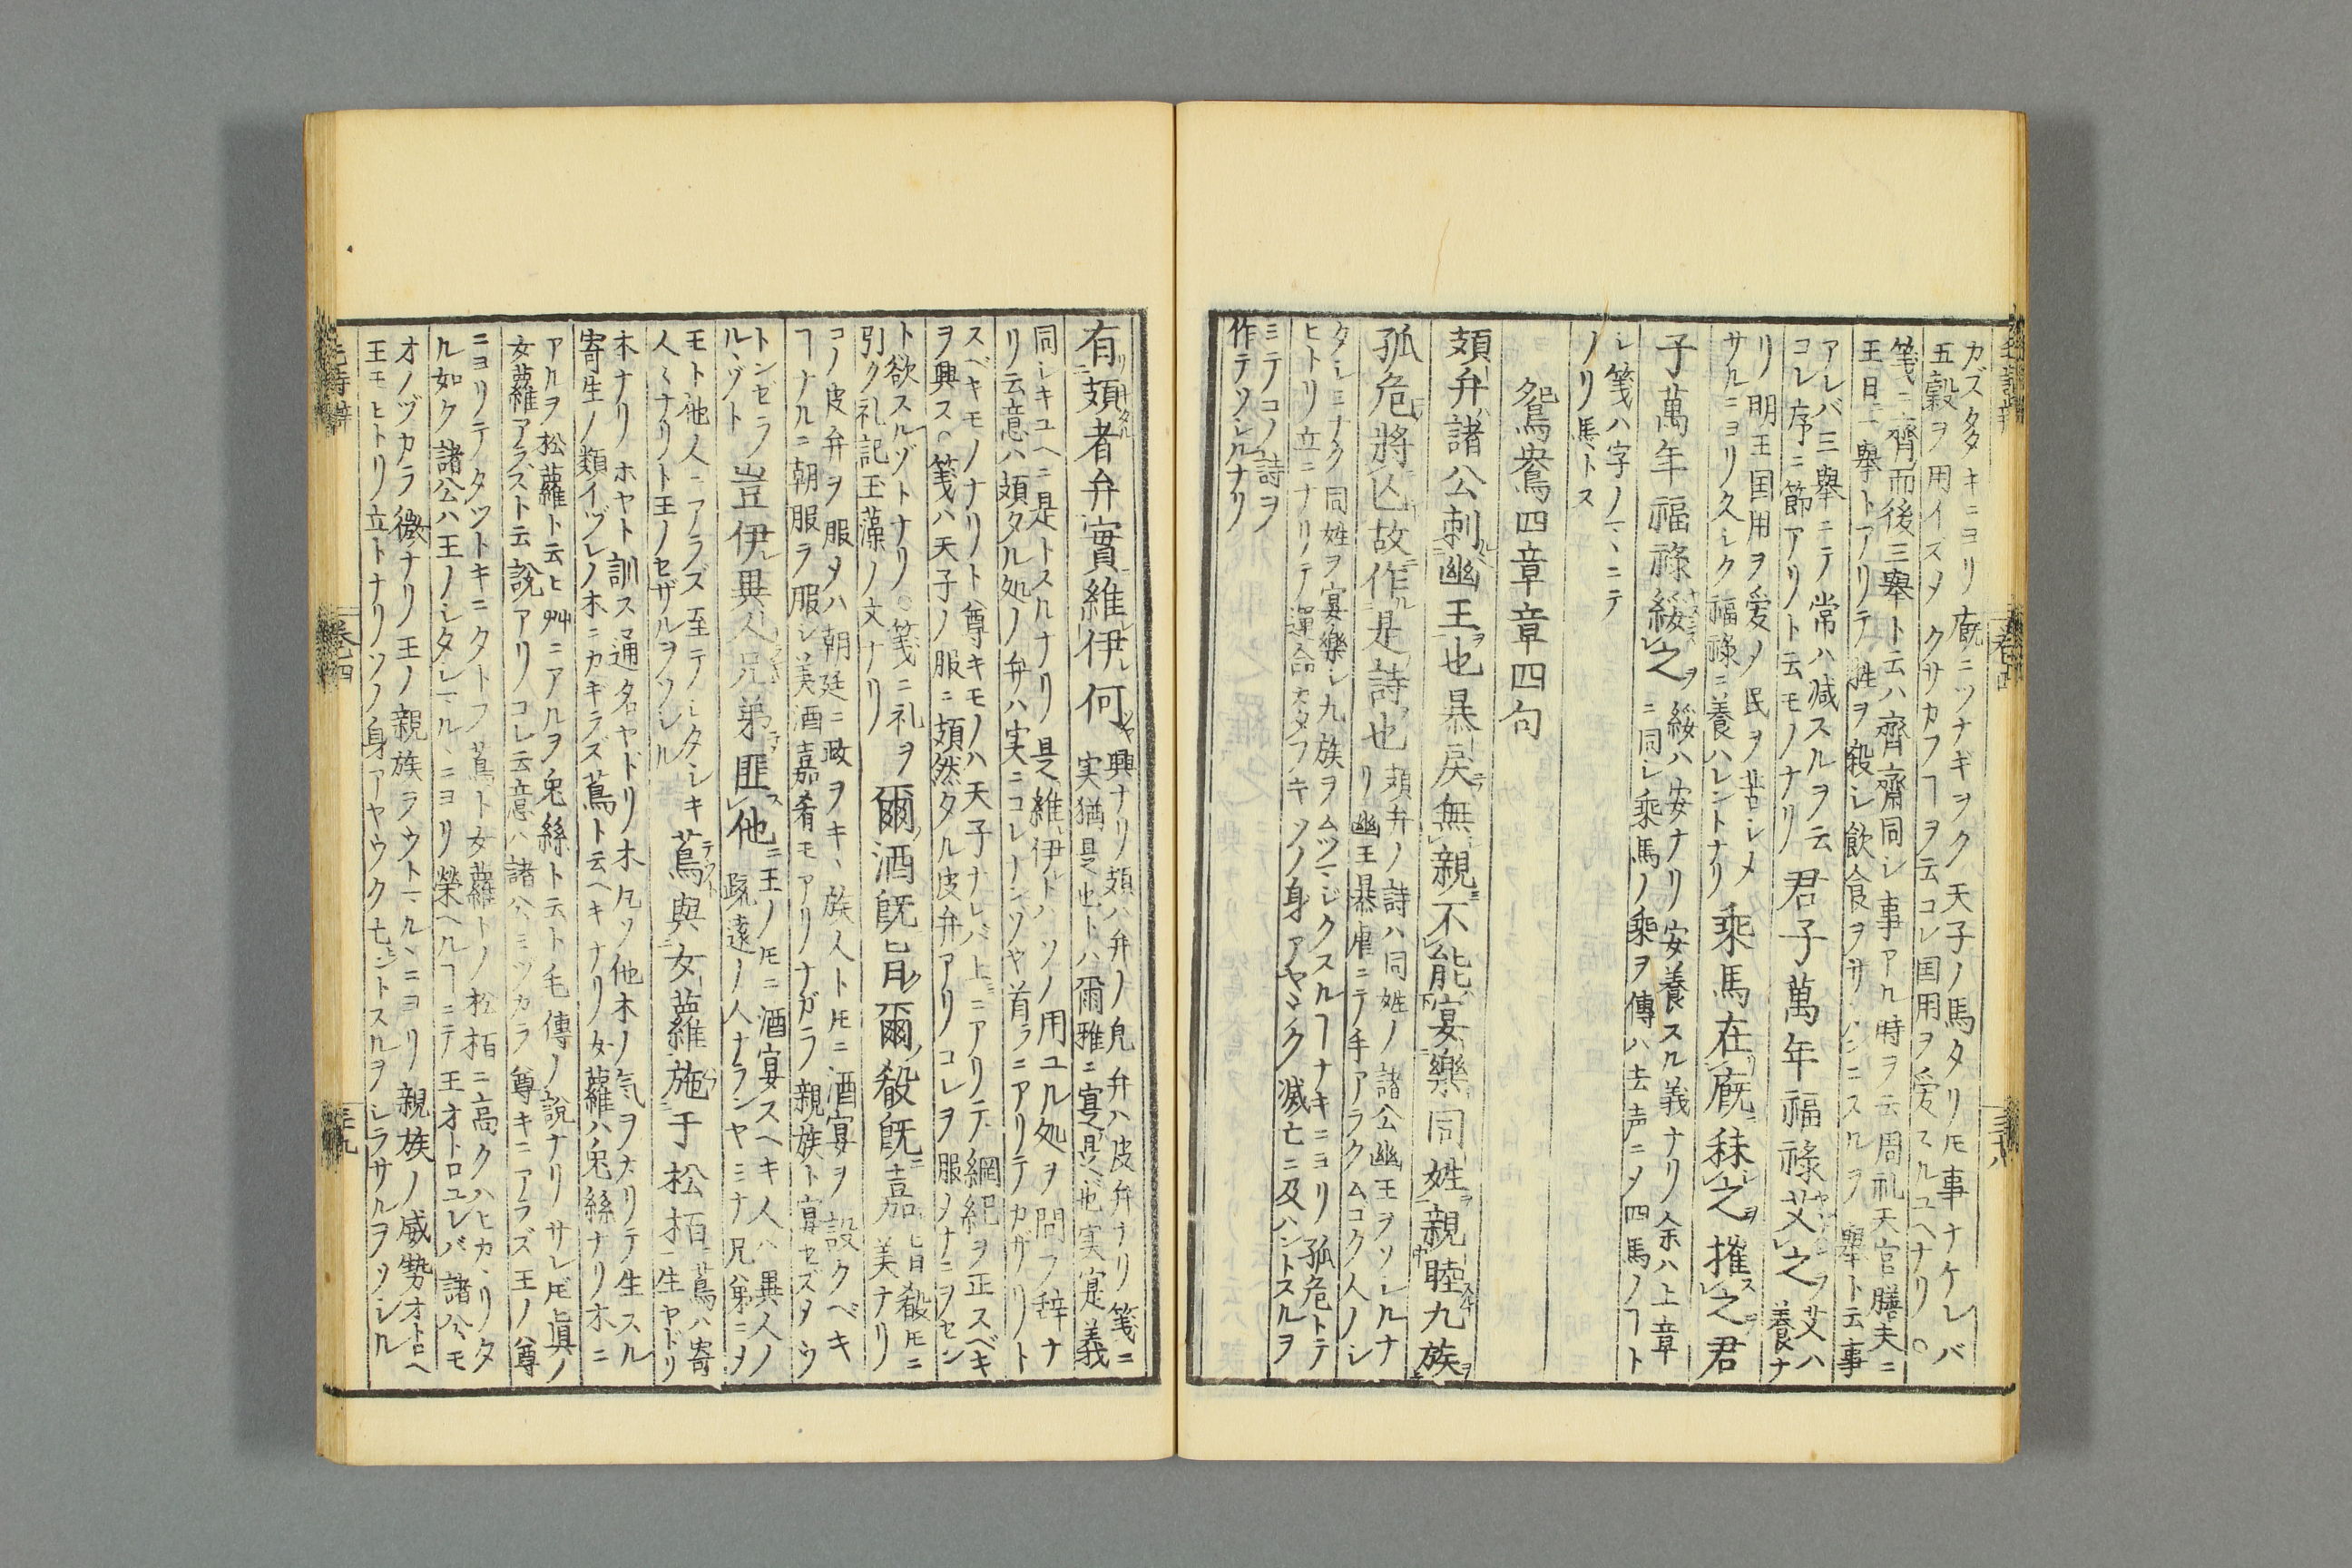 カズ多キニヨリ廐ニツナギヲク天子ノ馬タリ𪜈事ナケレバ
五穀ヲ用イズメクサカフヿヲ云コレ国用ヲ愛スルユヘナリ○
箋ニ齊而後三舉ト云ハ齊齋同シ事アル時ヲ云周礼天官膳夫ニ
王日一舉トアリテ牲ヲ殺シ飲食ヲ ニスルヲ舉ト云事
アレバ三舉ニテ常ハ减スルヲ云
コレ序ニ節アリト云モノナリ
君子萬年福祿艾之
艾ハ
養ナ
リ明王国用ヲ爱ノ民ヲ苦シメ
サルニヨリ久シク福祿ニ養ハレントナリ
乘馬在廐秣之摧之君
子萬年福祿綏之
綏ハ安ナリ安養スル義ナリ余ハ上章
ニ同シ乘馬ノ乘ヲ傳ハ去声ニメ四馬ノヿト
シ箋ハ字ノマヽニテ
ノリ馬トス
鴛鴦四章章四句
頍弁諸公刺幽王也暴戾無親不能宴樂同姓親睦九族
孤危將亾故作是詩也
頍弁ノ詩ハ同姓ノ諸公幽王ヲソシルナ
リ幽王暴虐ニテ手アラクムゴク人ノシ
タシミナク同姓ヲ宴樂シ九族ヲムツマジクスルヿナキニヨリ孤危トテ
ヒトリ立ニナリノテ運命 タフキソノ身アヤシク滅亡ニ及ハントスルヲ
ミテコノ詩ヲ
作テソシルナリ
有頍者弁實維伊何
興ナリ頍ハ弁ノ皃弁ハ皮弁ナリ箋ニ
実猶是也トハ爾雅ニ寔是也実寔義
同シキユヘニ是トスルナリ是維伊トハソノ用ユル処ヲ問フ辞ナ
リ云意ハ頍タル処ノ弁ハ実ニコレナンソヤ首ラニアリテカザリト
スベキモノナリノト尊キモノハ天子ナレバ上ニアリテ綱紀ヲ正スベキ
ヲ興ス○箋ハ天子ノ服ニ頍然タル皮弁アリノコレヲ服ノナニヲセン
ト欲スルゾトナリノ○箋ニ礼ヲ
引ク礼記玉藻ノ文ナリ
爾酒既旨爾殽既嘉
旨殽𪜈ニ
美ナリノ
コノ皮弁ヲ服メハ朝廷ニ政ヲキヽ族人ト𪜈ニ酒宴ヲ設クベキ
ヿナルニ朝服ラ服シ美酒嘉肴モアリノナガラ親族ト宴セズタウ
トンゼラ
ルヽゾト
豈伊異人兄弟匪他
ニ王ノ𪜈ニ酒宴スヘキ人ハ異人ノ
疏遠ノ人ナランヤミナ兄弟ニメ
モト他人ニアラズ至テシタシキ
人々ナリト王ノセザルヲソシル
蔦與女蘿施于松栢
蔦ハ寄
生ヤドリ
木ナリホヤト訓ス通名ヤドリ木凡ソ他木ノ気ヲカリテ生スル
寄生ノ類イヅレノ木ニカキラズ蔦ト云ヘキナリノ女蘿ハ兎絲ナリ木ニ
アルヲ松蘿ト云ヒ艸ニアルヲ兎絲ト云ト毛傳ノ説ナリサレ𪜈真ノ
女蘿アラズト云説アリコレ云意ハ諸公ミヅカラ尊キニアラズ王ノ尊
ニヨリテタツトキニタトフ蔦ト女蘿トノ松栢ニ高クハヒカヽリノタ
ル如ク諸公ハ王ノシタシマルヽニヨリ榮ヘルヿニテ王オトロユレバ諸公モ
オノヅカラ微ナリノ王ノ親族ラウトマルヽニヨリ親族ノ威勢オトロヘ
王モヒトリ立トナリノソノ身アヤウク亡ヒントスルヲシラサルヲソシル